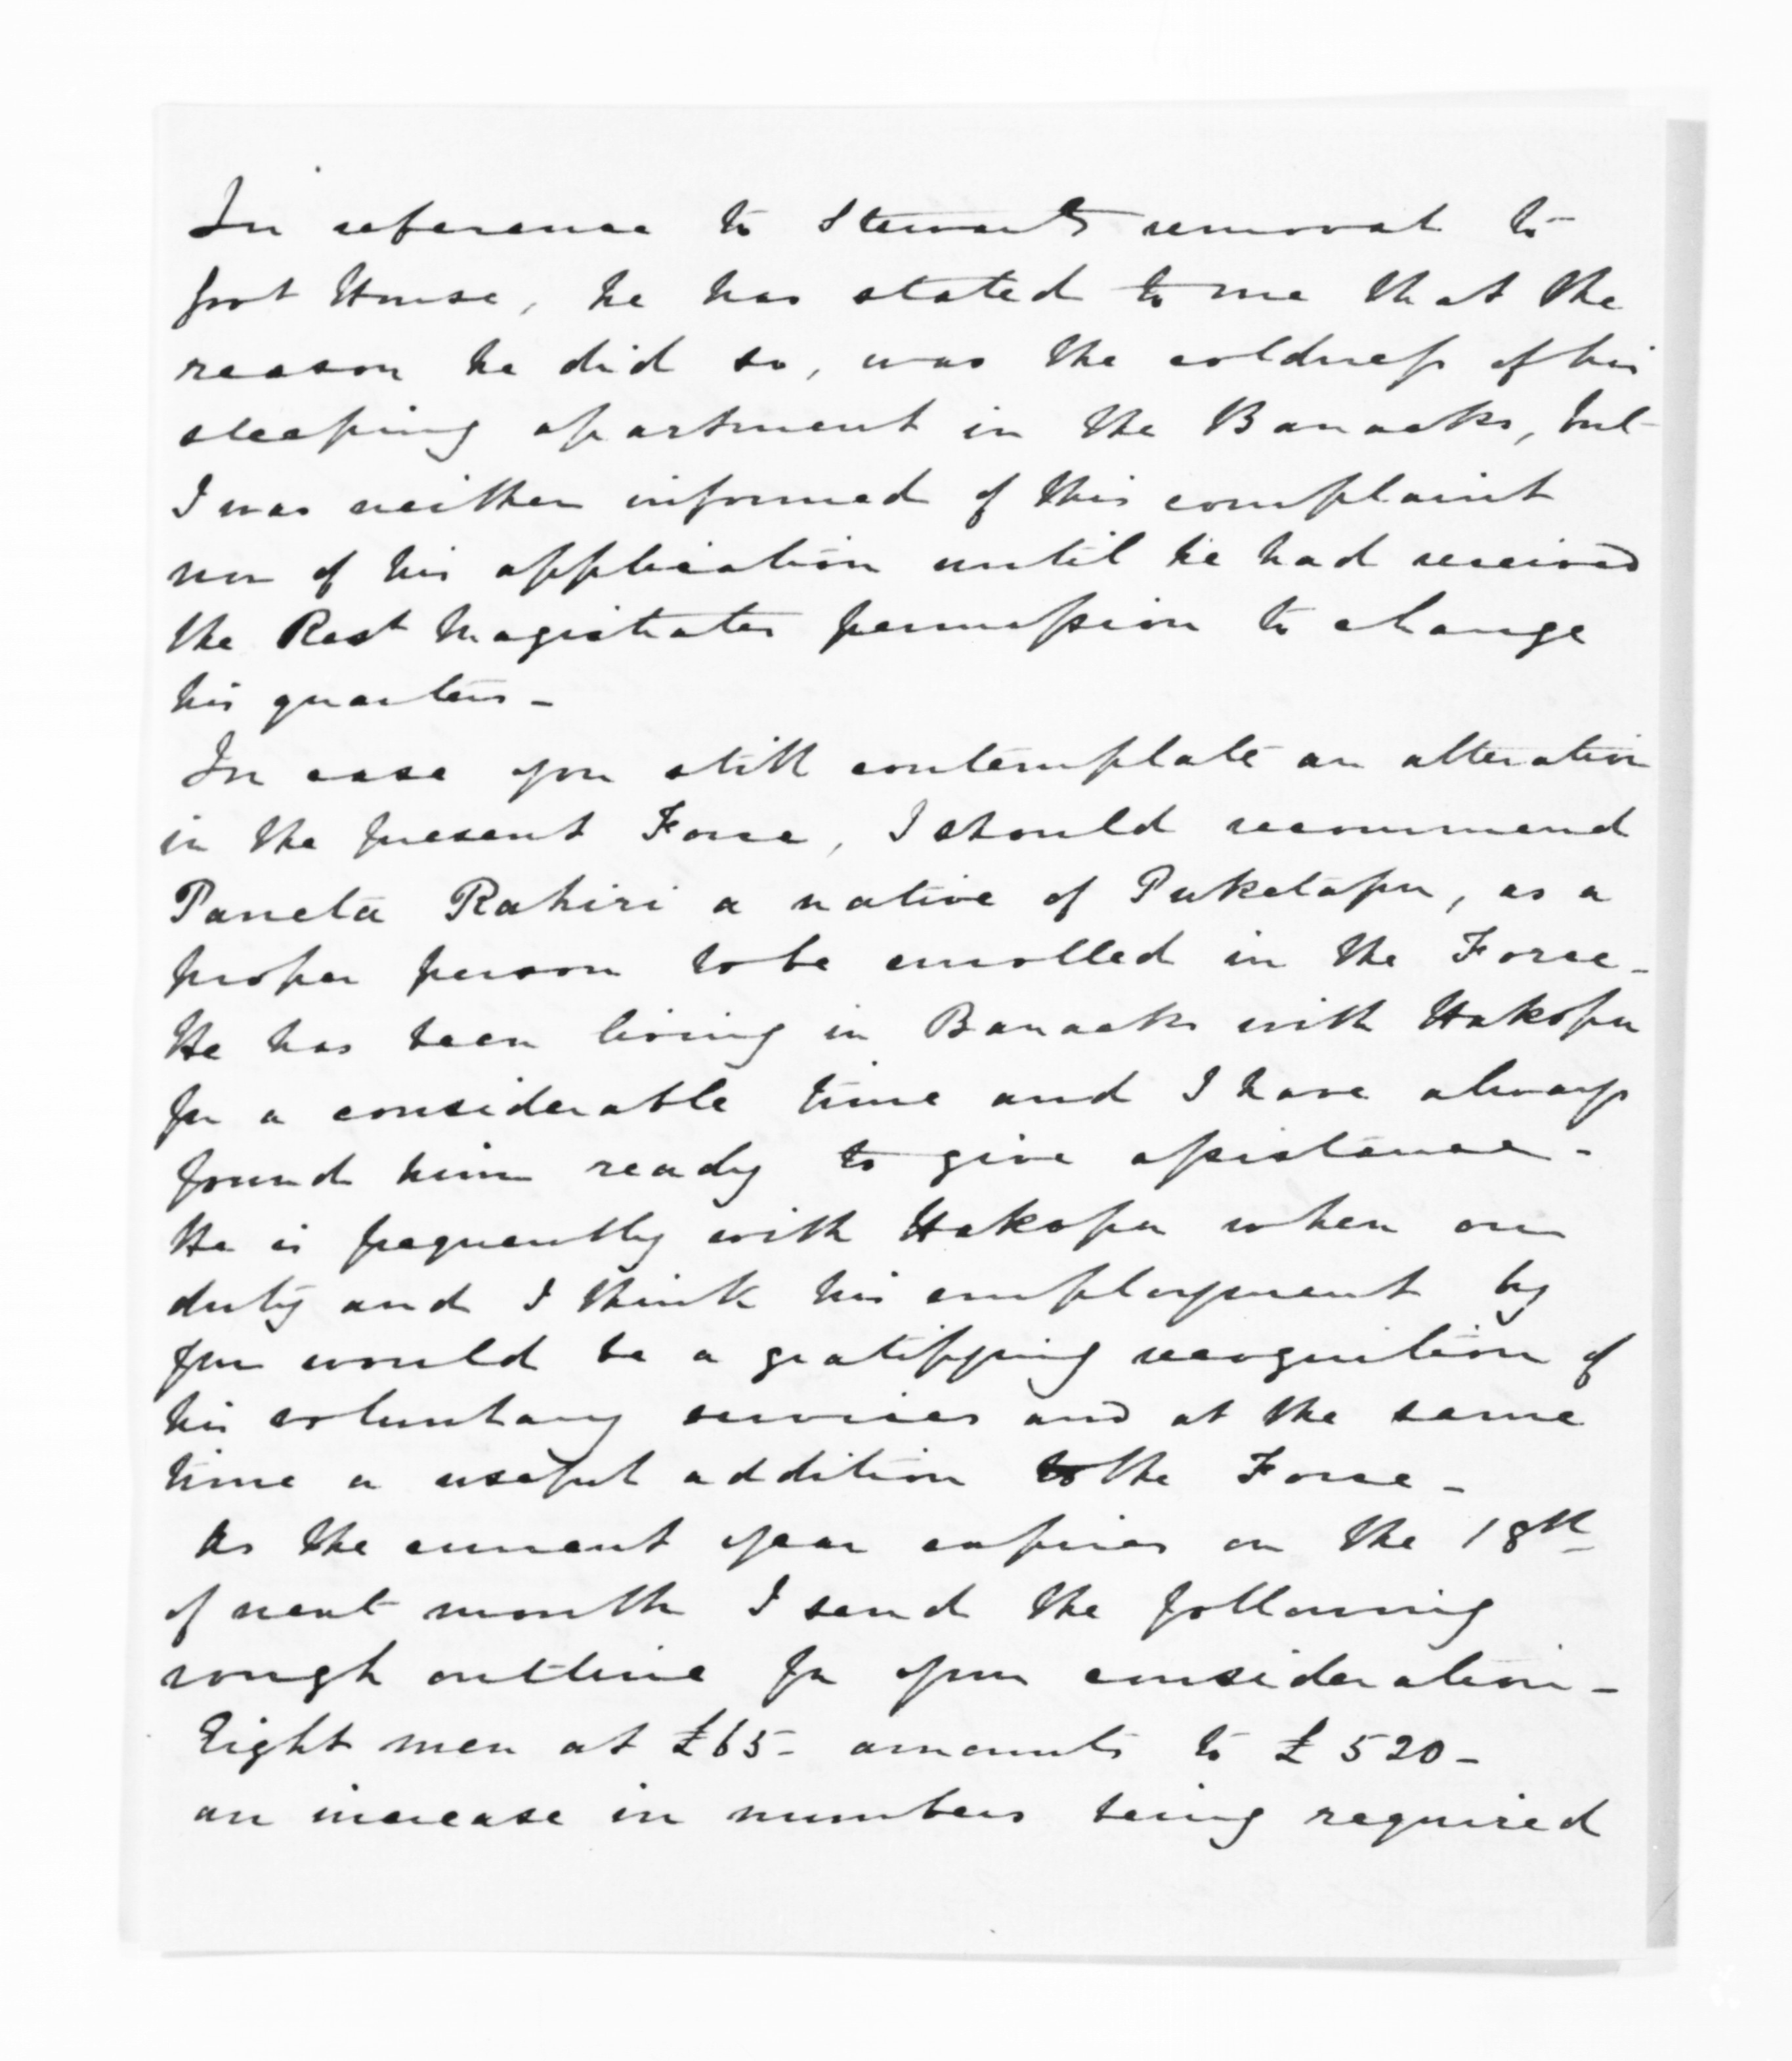 In reference to Stewarts removal to
House, he has stated to me that the
reason he did so, was the coldness of his
sleeping apartment in the Barracks, but
I was neither informed of this complaint
nor of his application until he had received
the Rest Magistrates permission to change
his quarters -
In case you still contemplate an alteration
in the present Force, I should recommend
Paneta Rahiri a native of Puketapu, as a
proper person to be enrolled in the Force -
He has been living in Barracks with Hakopa
for a considerable time and I have always
found him ready to give assistance -
He is frequently with Hakopa when on
duty and I think his employment by
you would be a gratifying recognition of
his voluntary services and at the same
time a useful addition to the Force -
As the current year expires on the 18th
of next month I send the following
rough outline for your consideration -
Eight men at £65 - amounts to £520 -
an increase in numbers being required